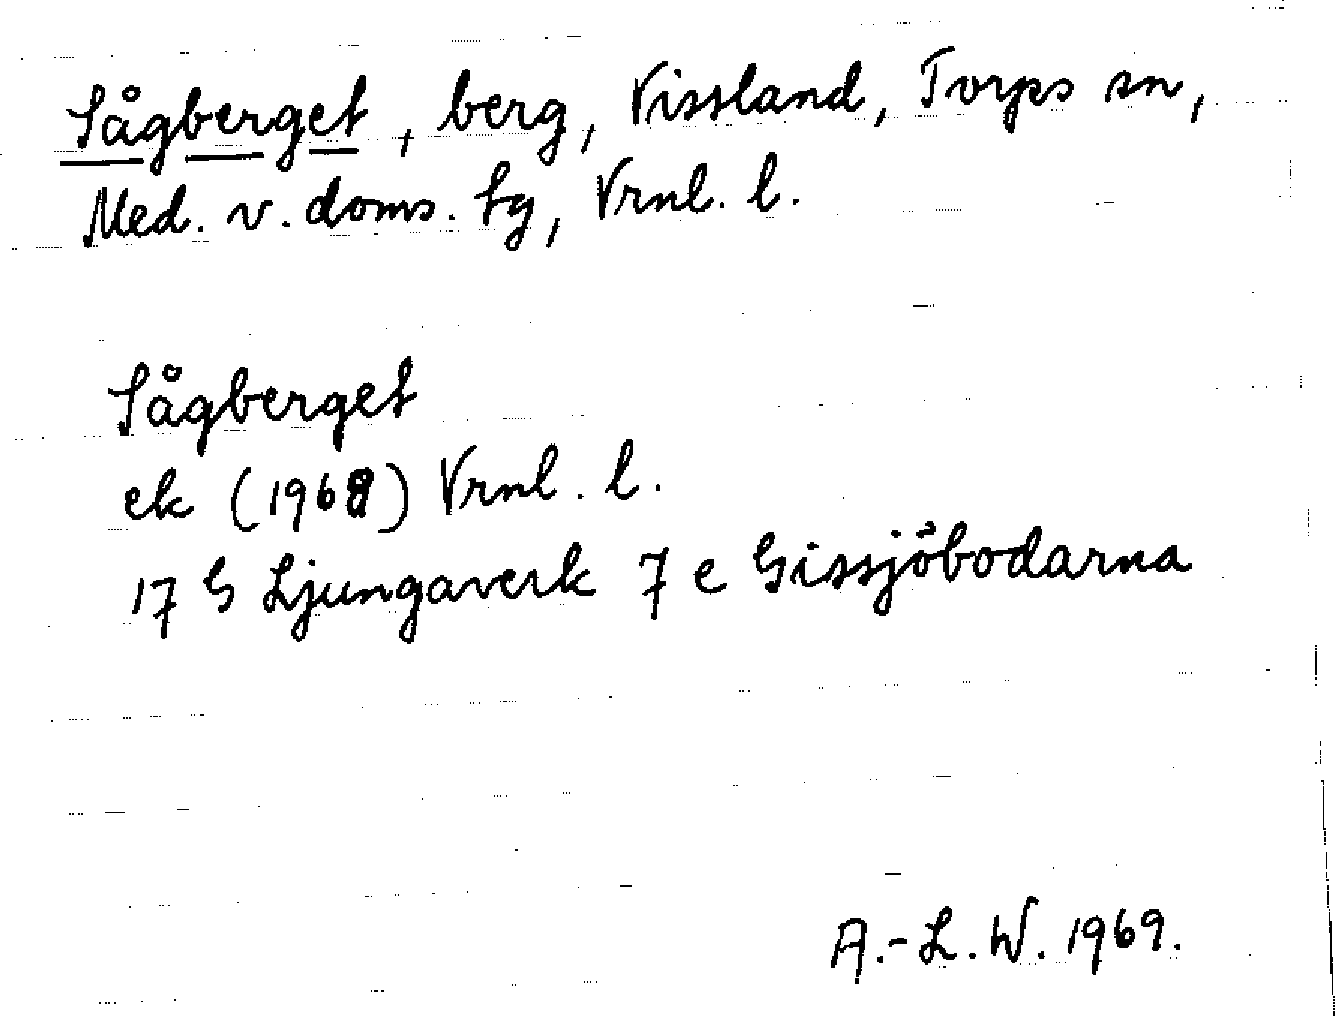 Sågberget, berg, Vissland, Torps sn,
Med. v. doms. tg, Vrnl. l.
Sågberget
ek (1968) Vrnl. l.
17 G Ljungaverk 7 e Gissjöbodarna
A.-L. W. 1969.